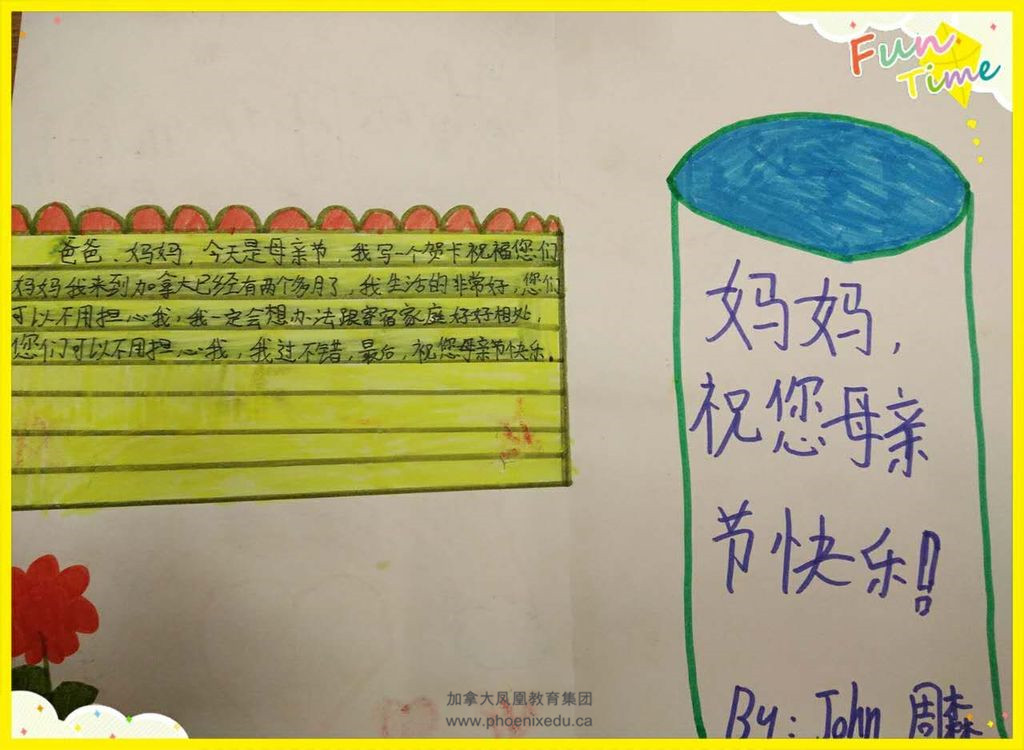 Fun
Time
爸爸、妈妈，今天是母亲节，我写一个贺卡祝福您们
妈妈我来到加拿大已经有两个多月了，我生活的非常好，您们
可以不用担心我，我一定会想办法跟寄宿家庭好好相处，
您们可以不用担心我，我过不错，最后，祝您母亲节快乐。
妈妈，
祝您母亲
节快乐！
By: John 周森
加拿大凤凰教育集团
www.phoenixedu.ca